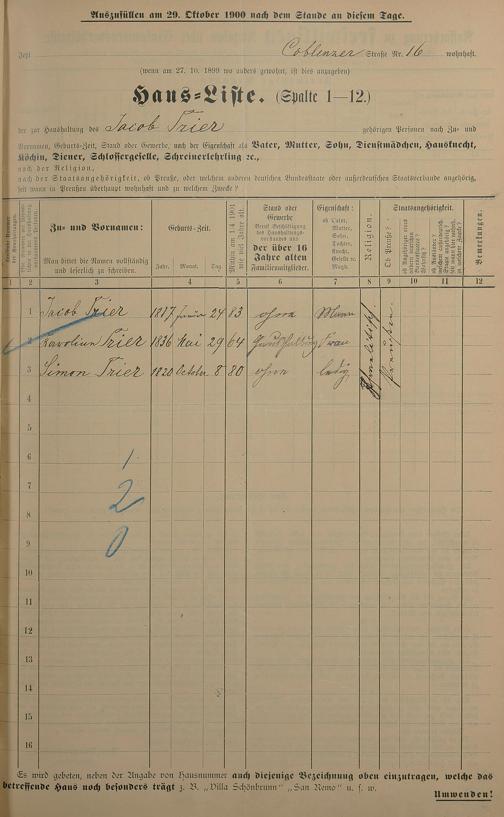 Auszufüllen am 29. Oktober 1900 nach dem Stande an diesem Tage.
Jetzt Coblenzer Straße Nr. 16 wohnhaft.
(wenn am 27. 10. 1899 wo anders gewohnt, ist dies anzugeben)
Haus-Liste. (Spalte 1—12.)
der zur Haushaltung des Jacob Trier gehörigen Personen nach Zu- und
Vornamen, Geburts-Zeit, Stand oder Gewerbe, nach der Eigenschaft als Vater, Mutter, Sohn, Dienstmädchen, Hausknecht,
Köchin, Diener, Schlossergeselle, Schreinerlehrling ec.,
nach der Religion,
nach der Staatsangehörigkeit, ob Preuße, oder welchem anderen deutschen Bundesstaate oder außerdeutschen Staatsverbande angehörig,
seit wann in Preußen überhaupt wohnhaft und zu welchem Zwecke?
Zu- und Vornamen:
Man bittet die Namen vollständig und leserlich zu schreiben.
Geburts-Zeit.
Jahr. Monat. Tag.
Mithin am 1./4. 1901 wie viel Jahre alt.
Stand oder Gewerbe
der über 16 Jahre alten Familienmitglieder.
Eigenschaft:
ob Vater, Mutter, Sohn, Tochter, Knecht, Geselle 2c. Magd.
Religion.
Staatsangehörigkeit.
Ob Preuße?
Bemerkungen.
1 2 3 4 5 6 7 8 9 10 11 12
1 Jacob Trier 1817 Januar 24 83 ohne Mann
2 Karolina Trier 1836 Mai 29 64 Haushaltung Frau
3 Simon Trier 1820 October 8 80 ohne ledig
Israelitisch.
Preußen.
4
5
6
7
8
9
10
11
12
13
14
15
16
1
2
0
Es wird gebeten, neben der Angabe von Hausnummer auch diejenige Bezeichnung oben einzutragen, welche das
betreffende Haus noch besonders trägt z. B. „Villa Schönbrunn“ „San Remo“ u. s. w.
Umwenden!